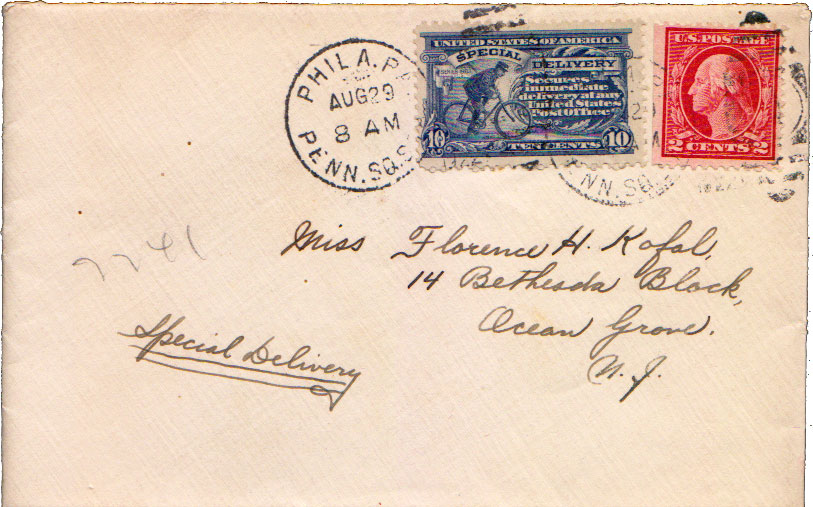 PHILA. PA.
AUG 29
8 AM
PENN. SQ. S
UNITED STATES OF AMERICA
SPECIAL DELIVERY
Secures
immediate
delivery at any
United States
Post Office.
10 TEN CENTS 10
U.S. POSTAGE
2 CENTS 2
AM
PENN. SQ.
Miss Florence H. Kofal,
14 Bethesda Block,
Ocean Grove.
N. J.
2241
Special Delivery